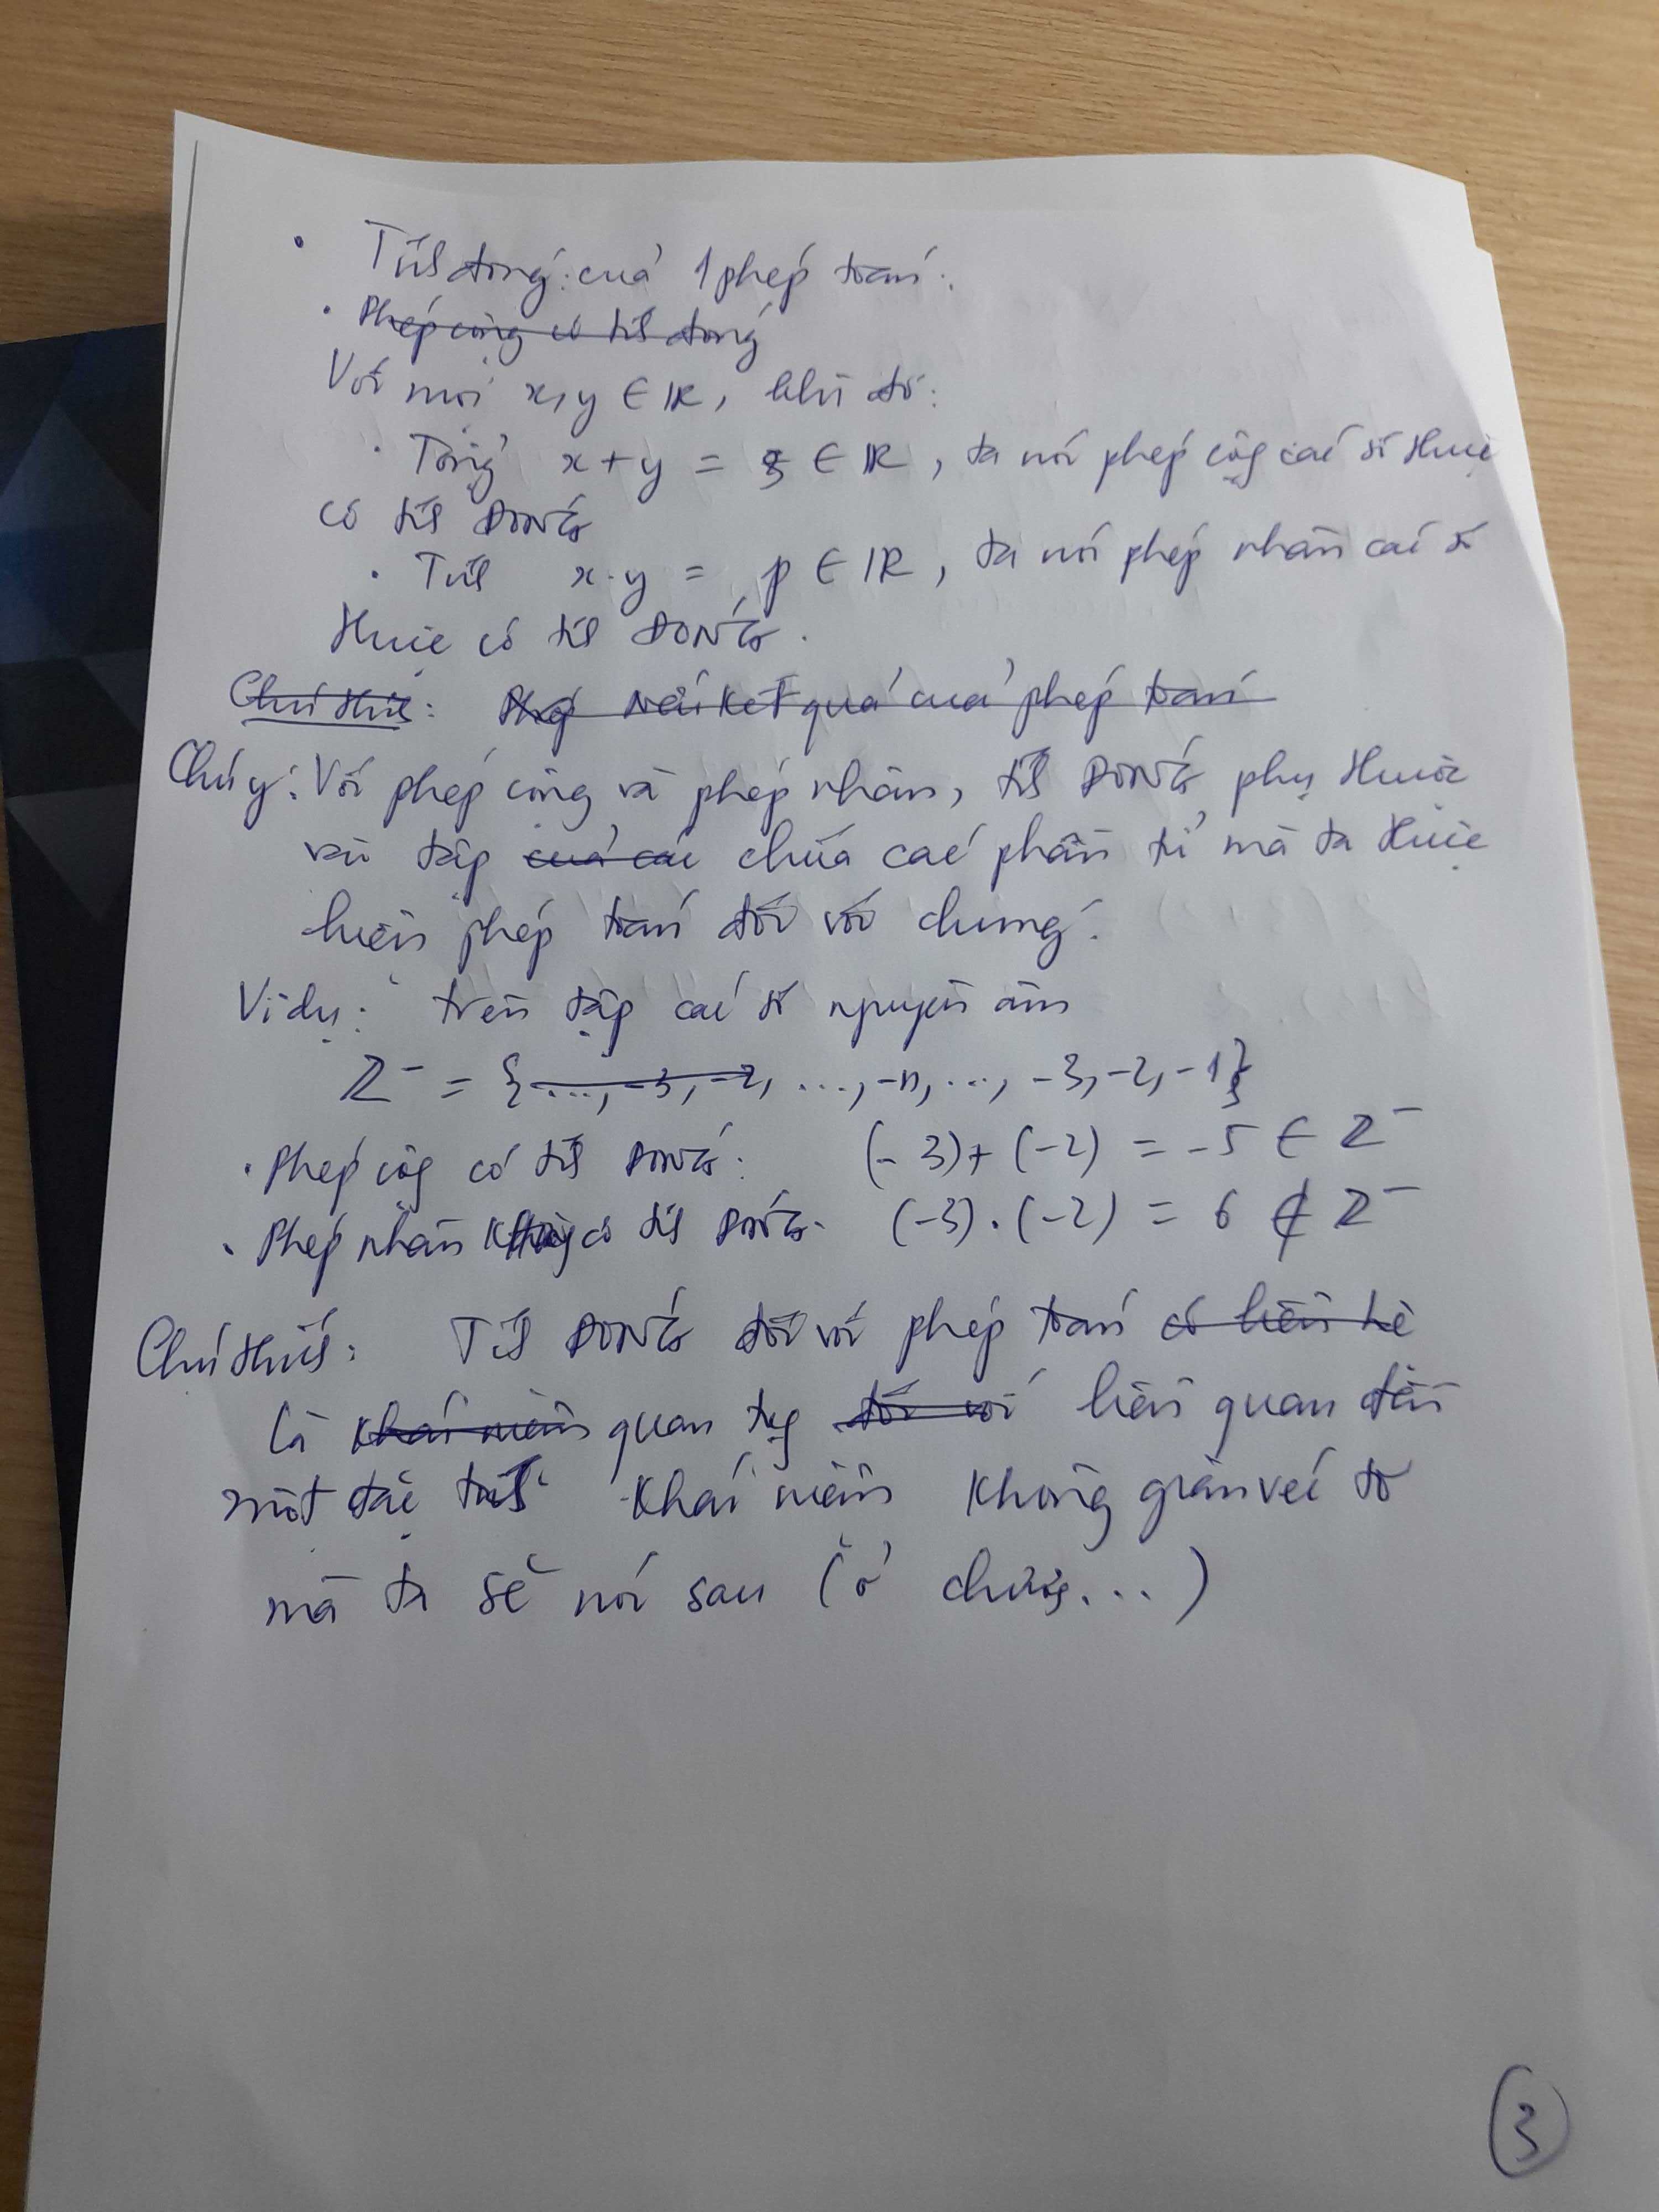 • Tính đóng: của 1 phép toán:
• Phép cộng có tính đóng
Với mọi x, y ∈ ℝ, khi đó:
• Tổng x + y = z ∈ ℝ, ta nói phép cộng các số thực
có tính ĐÓNG
• Tích x·y = p ∈ ℝ, ta nói phép nhân các số
thực có tính ĐÓNG.
Chú thích: Nếu kết quả của phép toán
Chú ý: Với phép cộng và phép nhân, tính ĐÓNG phụ thuộc
vào tập của các chứa các phần tử mà ta thực
hiện phép toán đối với chúng.
Ví dụ: trên tập các số nguyên âm
ℤ⁻ = {..., -3, -2, ..., -n, ..., -3, -2, -1}
• Phép cộng có tính ĐÓNG: (-3) + (-2) = -5 ∈ ℤ⁻
• Phép nhân không có tính ĐÓNG. (-3).(-2) = 6 ∉ ℤ⁻
Chú thích: Tính ĐÓNG đối với phép toán có liên hệ
là khái niệm quan trọng đối với liên quan đến
một đặc tính khái niệm không gian véc tơ
mà ta sẽ nói sau (ở chương...)
3